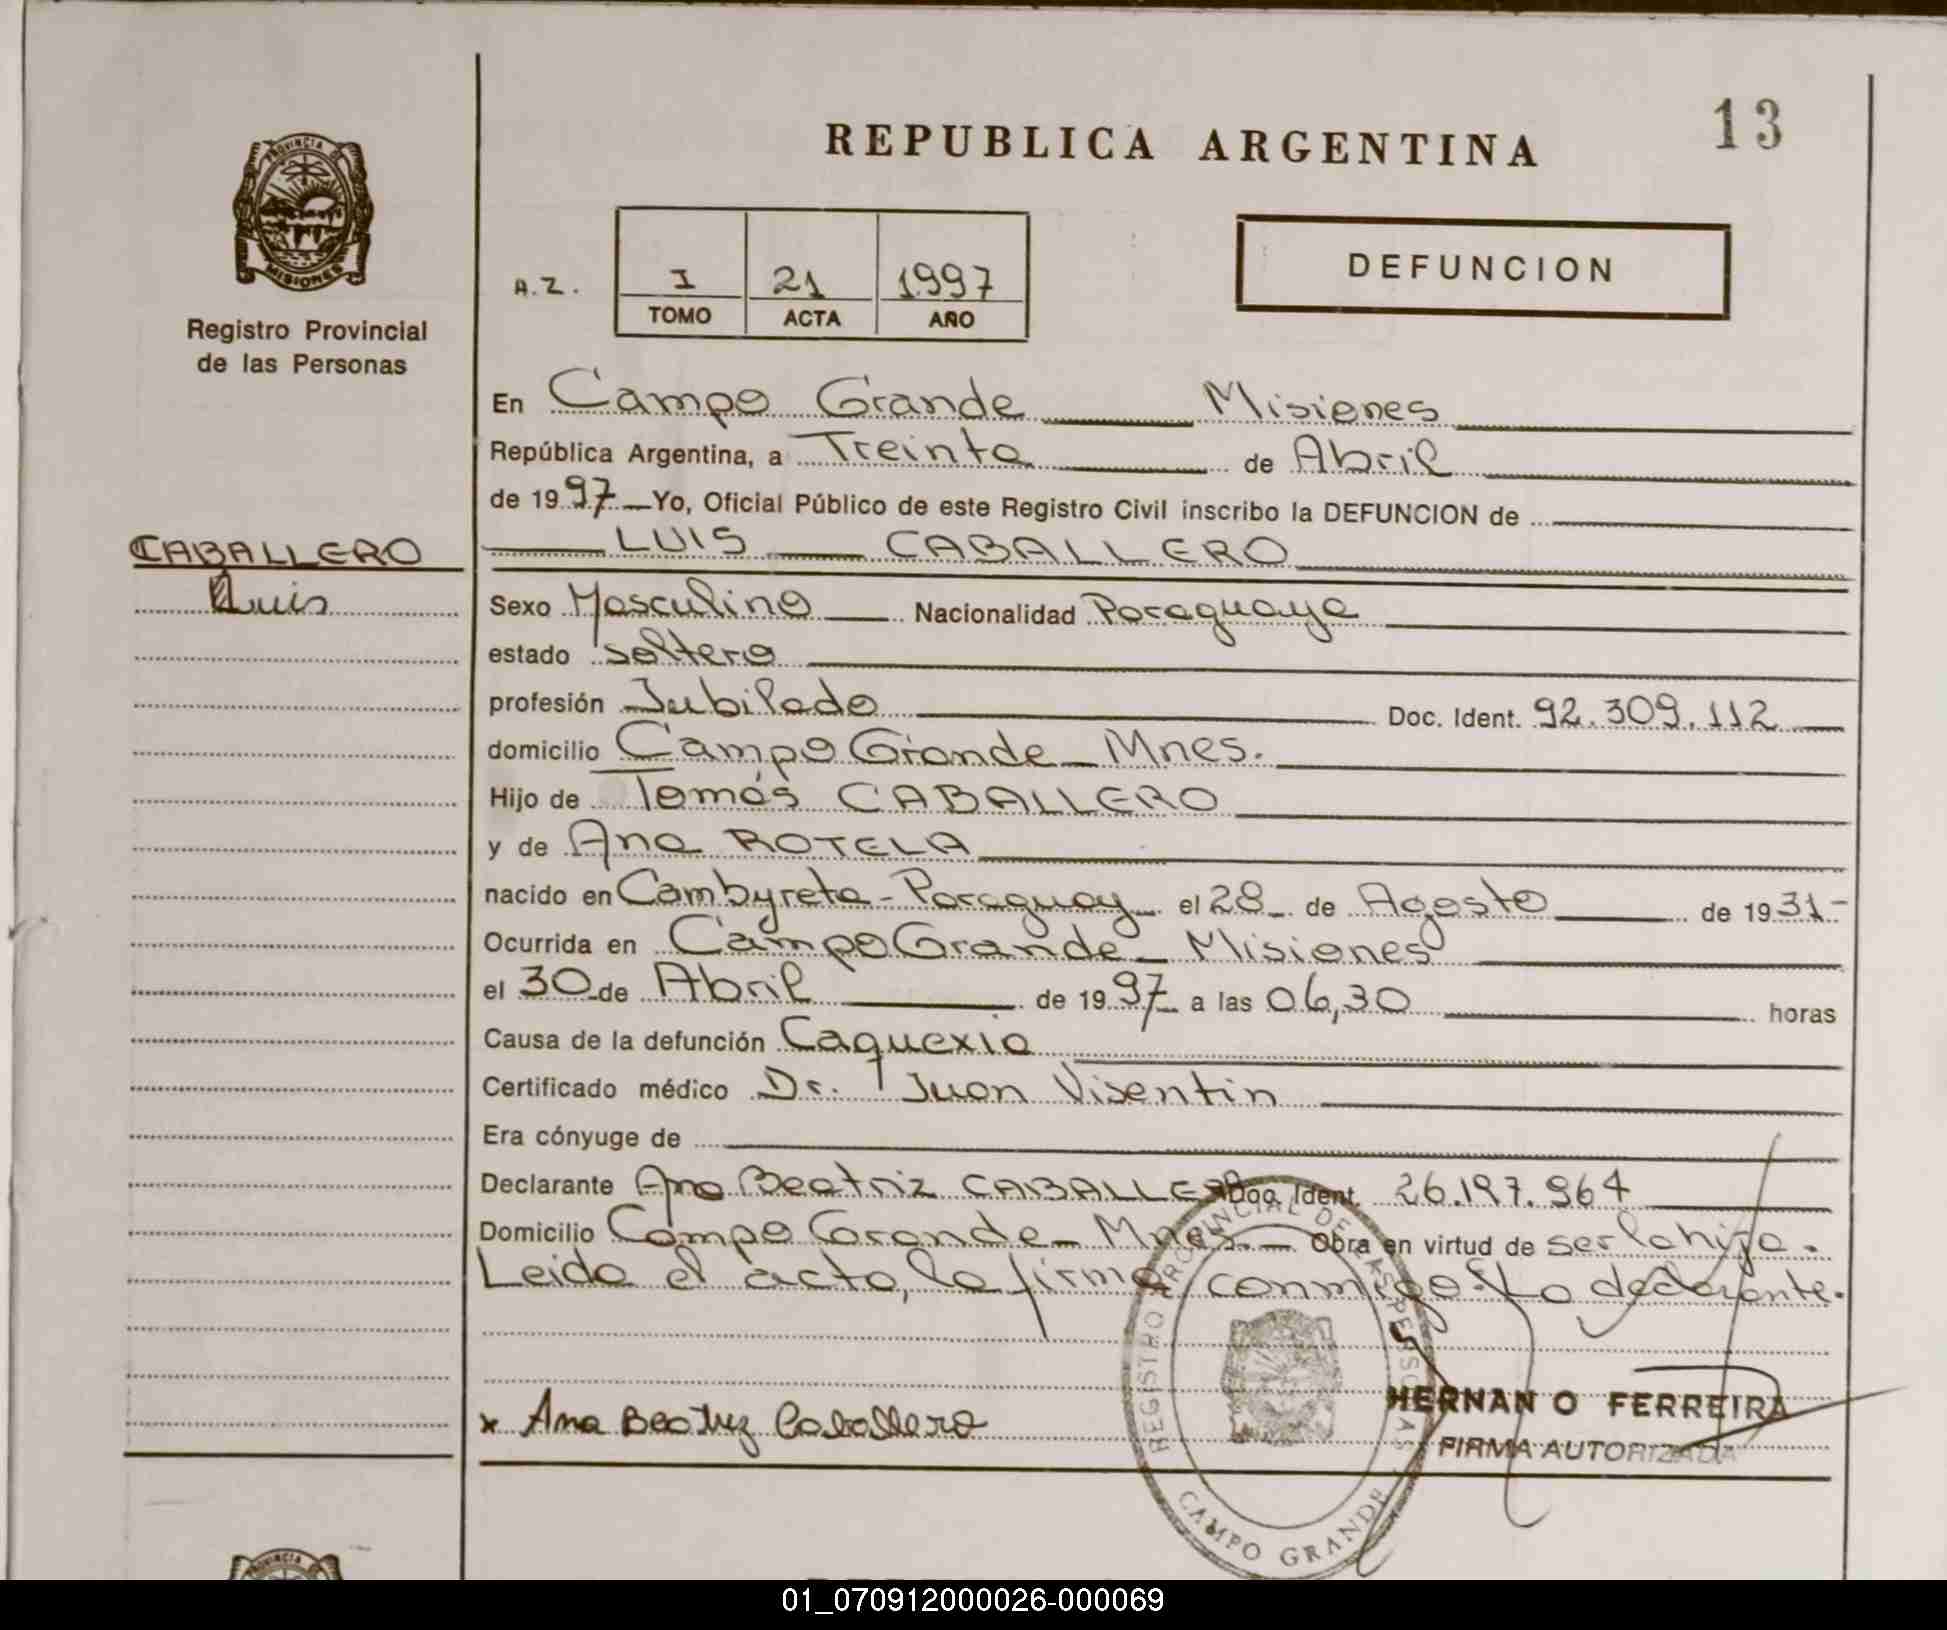 REPUBLICA ARGENTINA
13
PROVINCIA DE
MISIONES
Registro Provincial
de las Personas
A.Z.
I 21 1997
TOMO ACTA AÑO
DEFUNCION
En Campo Grande Misiones
República Argentina, a Treinta de Abril
de 1997 Yo, Oficial Público de este Registro Civil inscribo la DEFUNCION de
LUIS CABALLERO
CABALLERO
Luis
Sexo Masculino Nacionalidad Paraguaya
estado soltero
profesión Jubilado Doc. Ident. 92.309.112
domicilio Campo Grande - Mnes.
Hijo de Tomás CABALLERO
y de Ana ROTELA
nacido en Cambyreta - Paraguay el 28 de Agosto de 1931-
Ocurrida en Campo Grande - Misiones
el 30 de Abril de 1997 a las 06,30 horas
Causa de la defunción Caquexia
Certificado médico Dr. Juan Visentin
Era cónyuge de
Declarante Ana Beatriz CABALLERO Doc. Ident. 26.197.964
Domicilio Campo Grande - Mnes. Obra en virtud de ser la hija.
Leida el acta, la firma conmigo: La declarante.
x Ana Beatriz Caballero
REGISTRO PROVINCIAL DE LAS PERSONAS
CAMPO GRANDE
HERNAN O FERREIRA
FIRMA AUTORIZADA
PROVINCIA
01_070912000026-000069